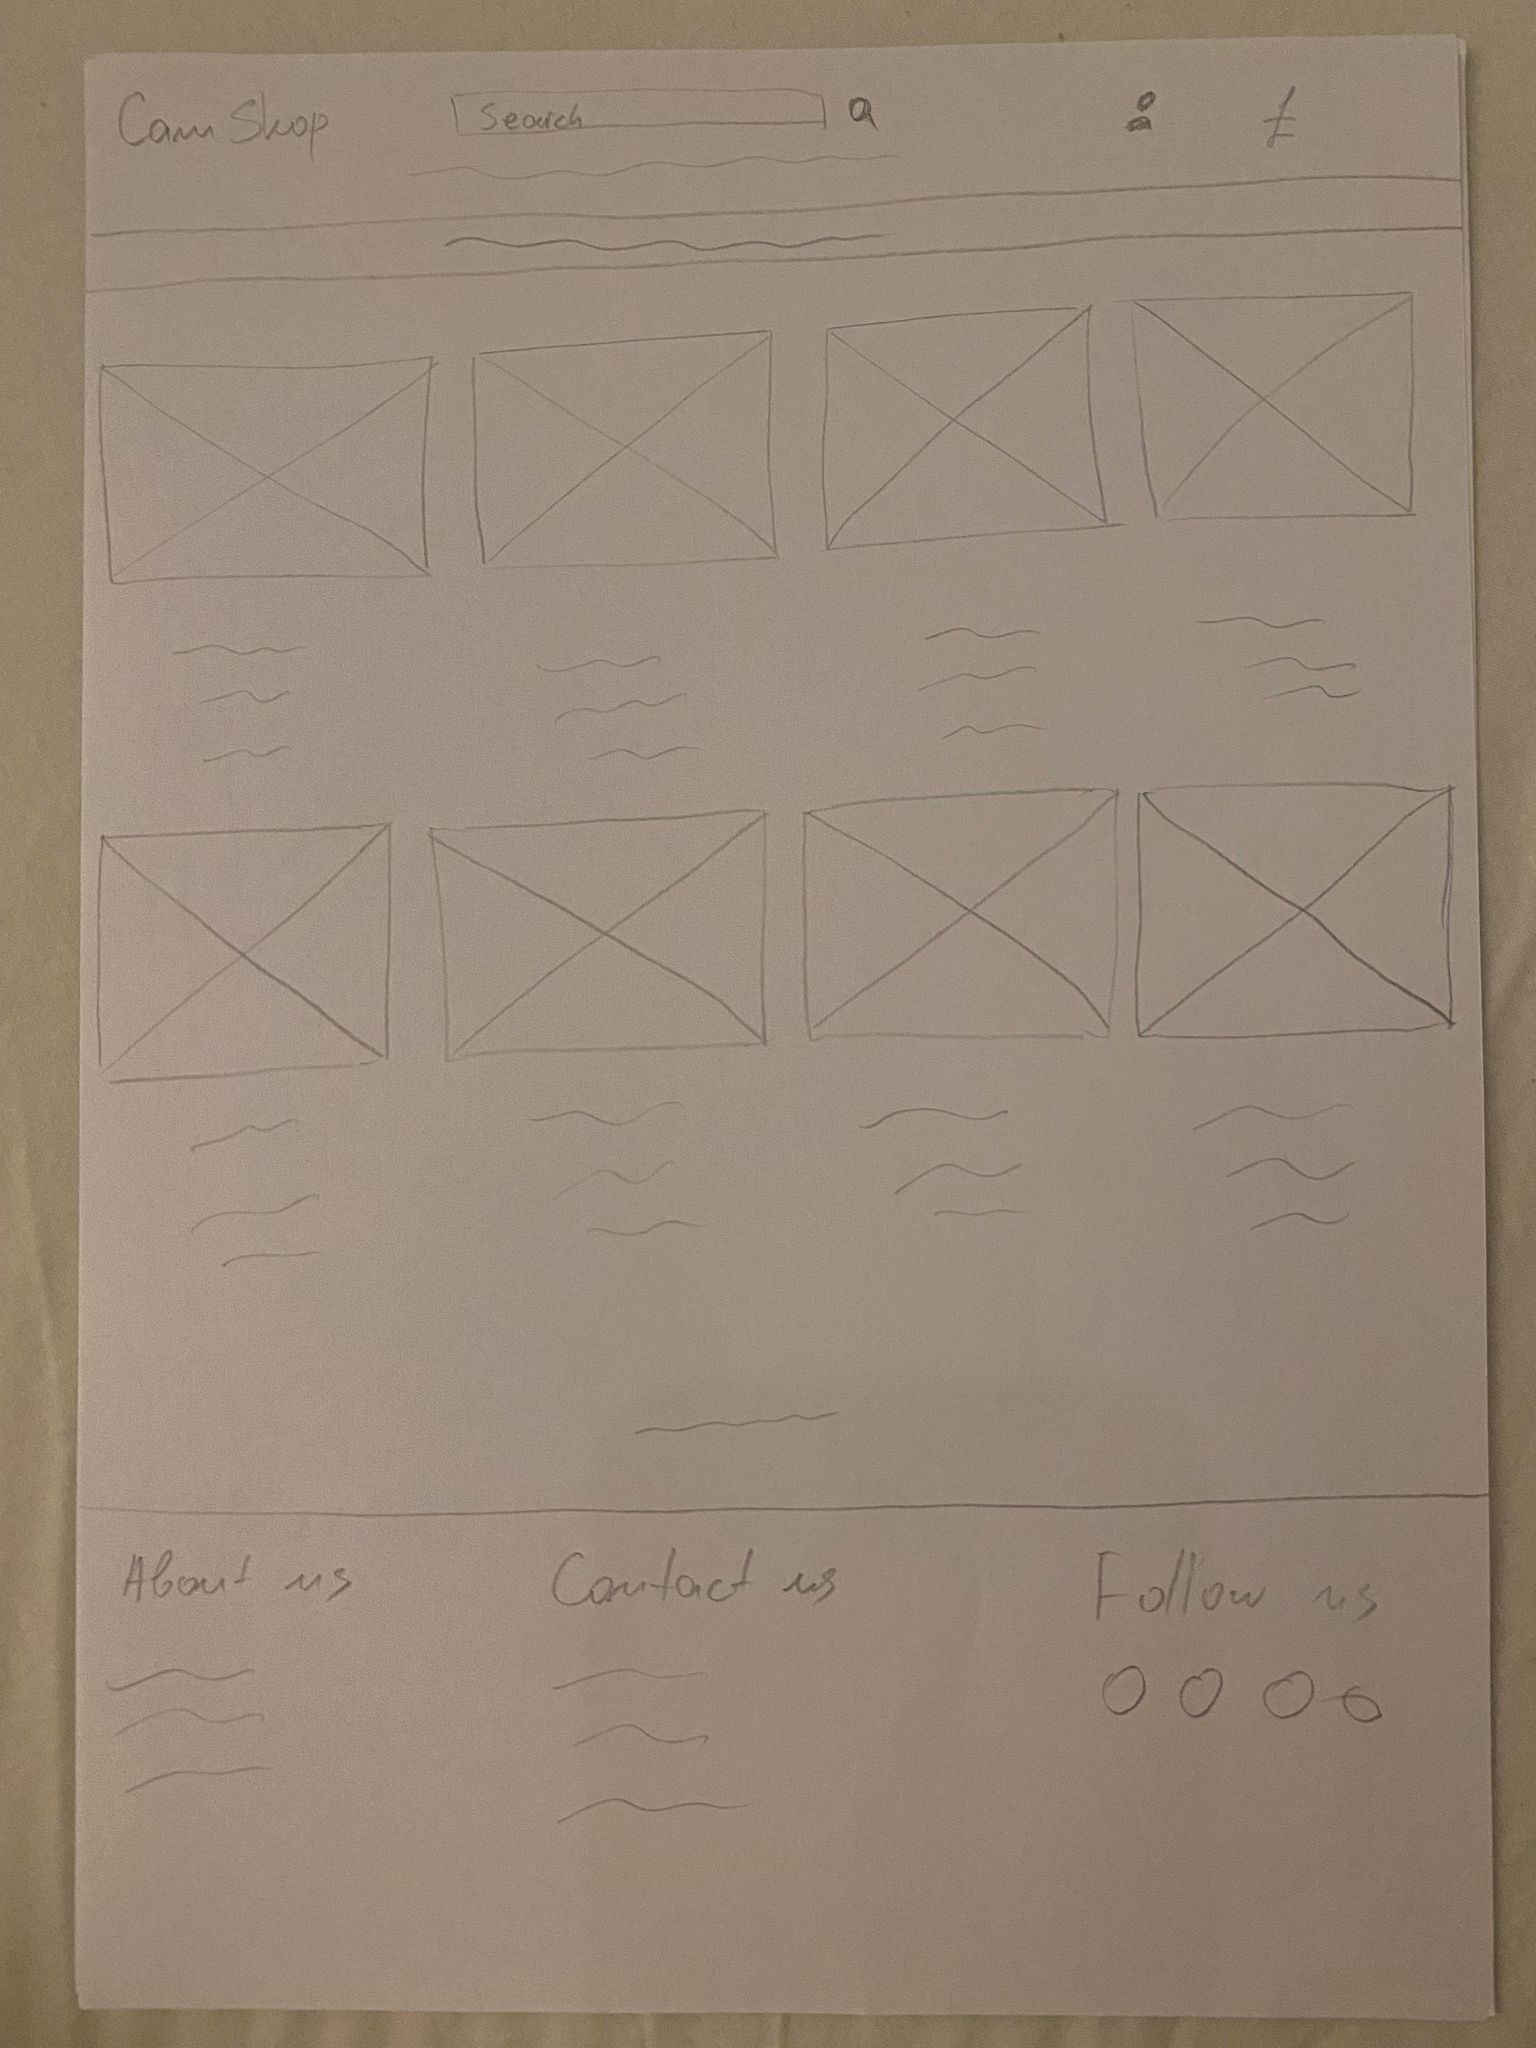 Cam Shop Search £
About us Contact us Follow us